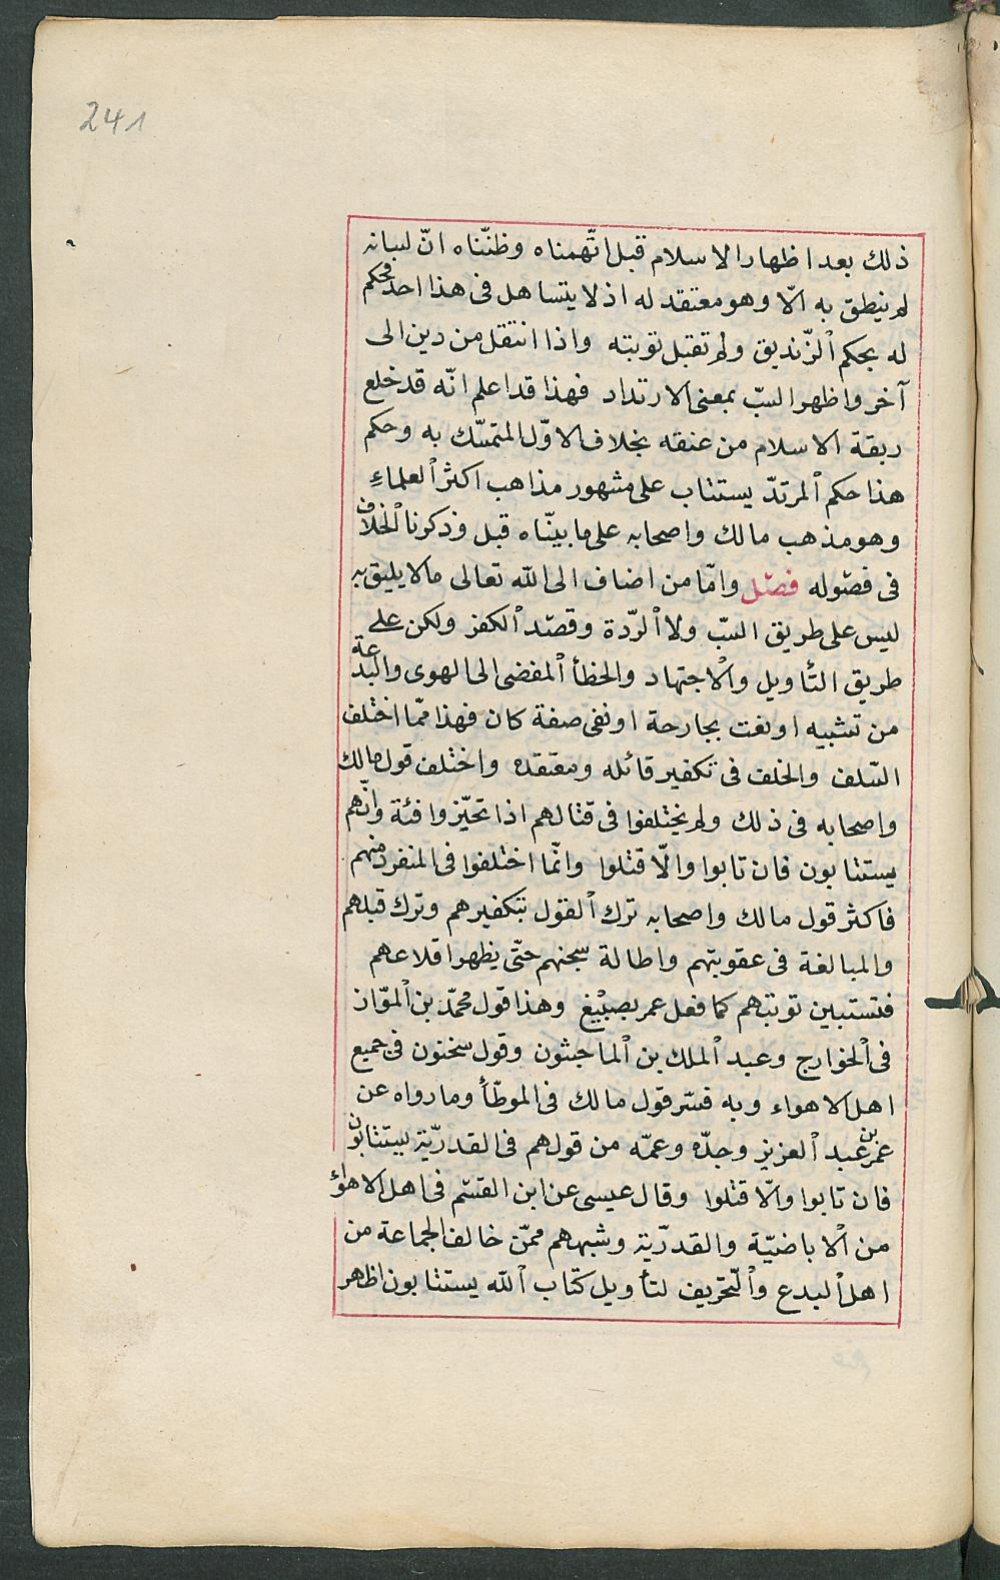 241
ذلك بعد اظهار الاسلام قبل اتّهمناه وظننّاه انّ لسانه
لم ينطق به الّا وهو معتقد له اذ لا يتساهل فى هذا احد فحكم
له بحكم الزّنديق ولم تقبل توبته واذا انتقل من دين الى
آخر واظهر السّبّ بمعنى الارتداد فهذا قد اعلم انّه قد خلع
ربقة الاسلام من عنقه بخلاف الاوّل المتمسّك به وحكم
هذا حكم المرتدّ يستتاب على مشهور مذاهب اكثر العلماء
وهو مذهب مالك واصحابه على ما بينّاه قبل وذكرنا الخلاف
فى فصوله فصل وامّا من اضاف الى الله تعالى ما لا يليق به
ليس على طريق السّبّ ولا الرّدة وقصد الكفر ولكن على
طريق التّأويل والاجتهاد والخطأ المفضى الى الهوى والبدعة
من تشبيه او نعت بجارحة او نفى صفة كان فهذا ممّا اختلف
السّلف والخلف فى تكفير قائله ومعتقده واختلف قول مالك
واصحابه فى ذلك ولم يختلفوا فى قتالهم اذا تحيّزوا فئة وانّهم
يستتابون فان تابوا والّا قتلوا وانّما اختلفوا فى المنفرد منهم
فاكثر قول مالك واصحابه ترك القول بتكفيرهم وترك قتلهم
والمبالغة فى عقوبتهم واطالة سجنهم حتّى يظهر اقلاعهم
فتستبين توبتهم كما فعل عمر بصبيغ وهذا قول محمّد بن الموّاز
فى الخوارج وعبد الملك بن الماجشون وقول سحنون فى جميع
اهل الاهواء وبه فسّر قول مالك فى الموطّأ وما رواه عن
عمر بن عبد العزيز وجدّه وعمّه من قولهم فى القدريّة يستتابون
فان تابوا والّا قتلوا وقال عيسى عن ابن القسم فى اهل الاهواء
من الاباضيّة والقدريّة وشبههم ممّن خالف الجماعة من
اهل البدع والتّحريف لتأويل كتاب الله يستتابون اظهر